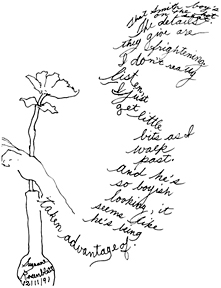 that Smith boy's
on the
The details
they give are
frightening
I don't really
listen,
I just
get
little
bits as I
walk
past.
And he's
so boyish
looking, it
seems like
he's being
taken advantage of.
12/11/91